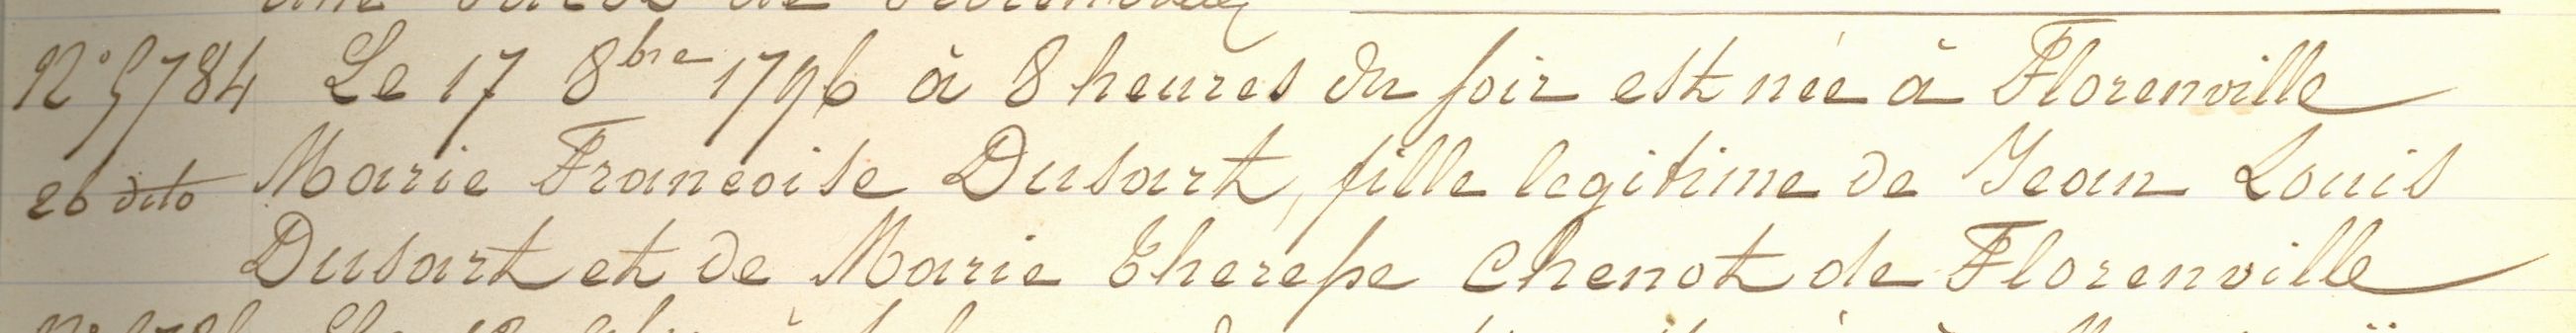 N° 5784 Le 17 8bre 1796 à 8 heures du soir est née à Florenville
26 dito Marie Francoise Dusart, fille legitime de Jean Louis
Dusart et de Marie Theresse Chenot de Florenville